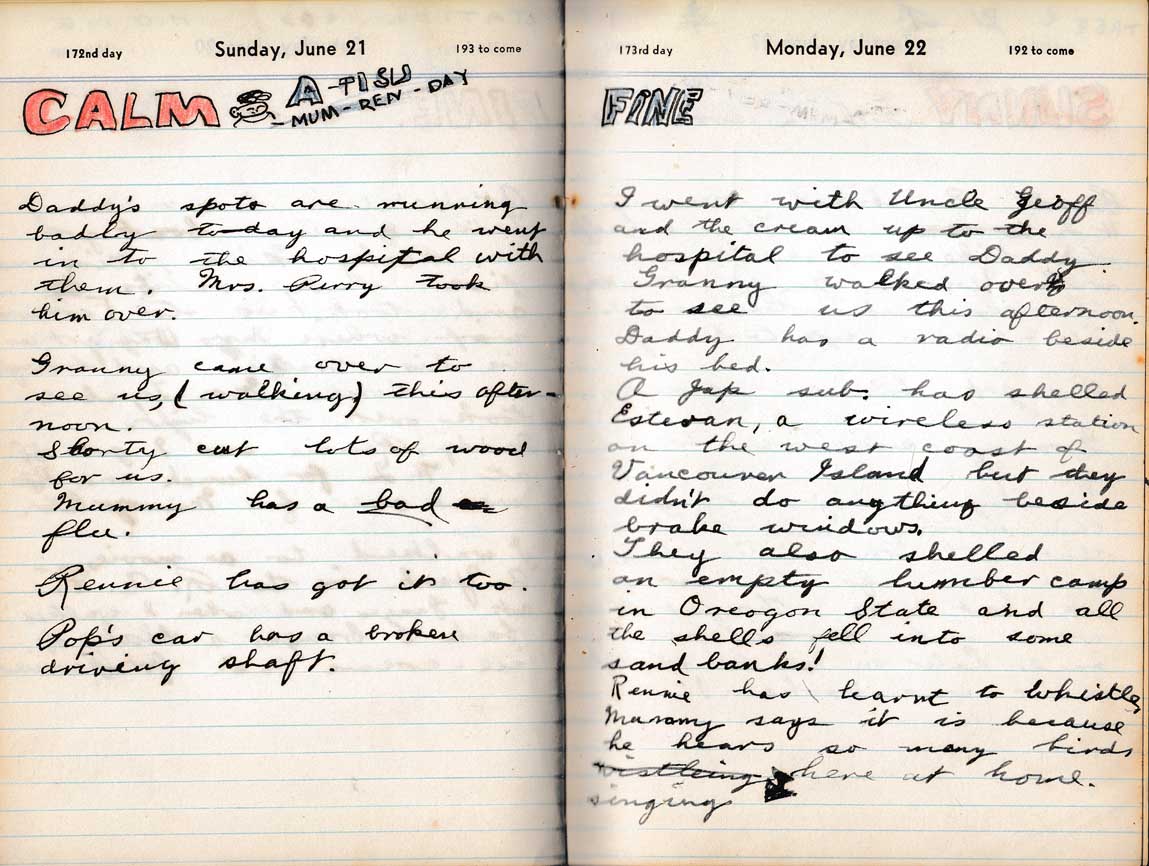 172nd day Sunday, June 21 193 to come
CALM A-TISU
MUM-REN-DAY
Daddy's spots are running
badly to-day and he went
in to the hospital with
them. Mrs. Perry took
him over.
Granny came over to
see us, (walking) this after-
noon.
Shorty cut lots of wood
for us.
Mummy has a bad
flu.
Rennie has got it too.
Pop's car has a broken
driving shaft.
173rd day Monday, June 22 192 to come
FINE
I went with Uncle Geoff
and the cream up to the
hospital to see Daddy.
Granny walked over
to see us this afternoon.
Daddy has a radio beside
his bed.
A Jap sub. has shelled
Estevan, a wireless station
on the west coast of
Vancouver Island but they
didn't do anything beside
brake windows.
They also shelled
an empty lumber camp
in Oreogon State and all
the shells fell into some
sand banks!
Rennie has learnt to whistle,
Mummy says it is because
he hears so many birds
wistleing here at home.
singing